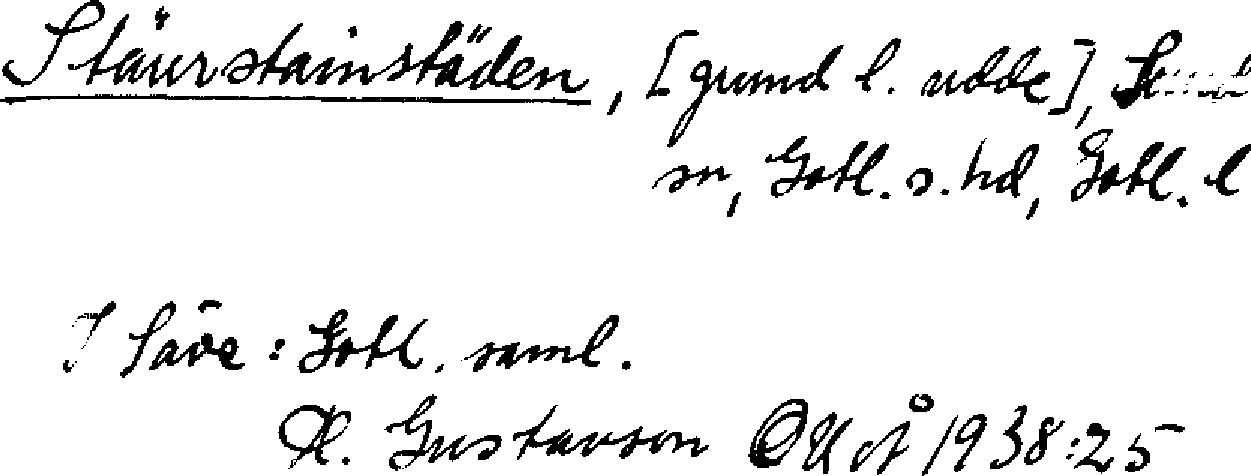 Stäurstainstäden, [grund l. udde],
sn, Gotl. s. hd, Gotl. l
Säve: Gotl. saml.
H. Gustavson OUÅ 1938:25